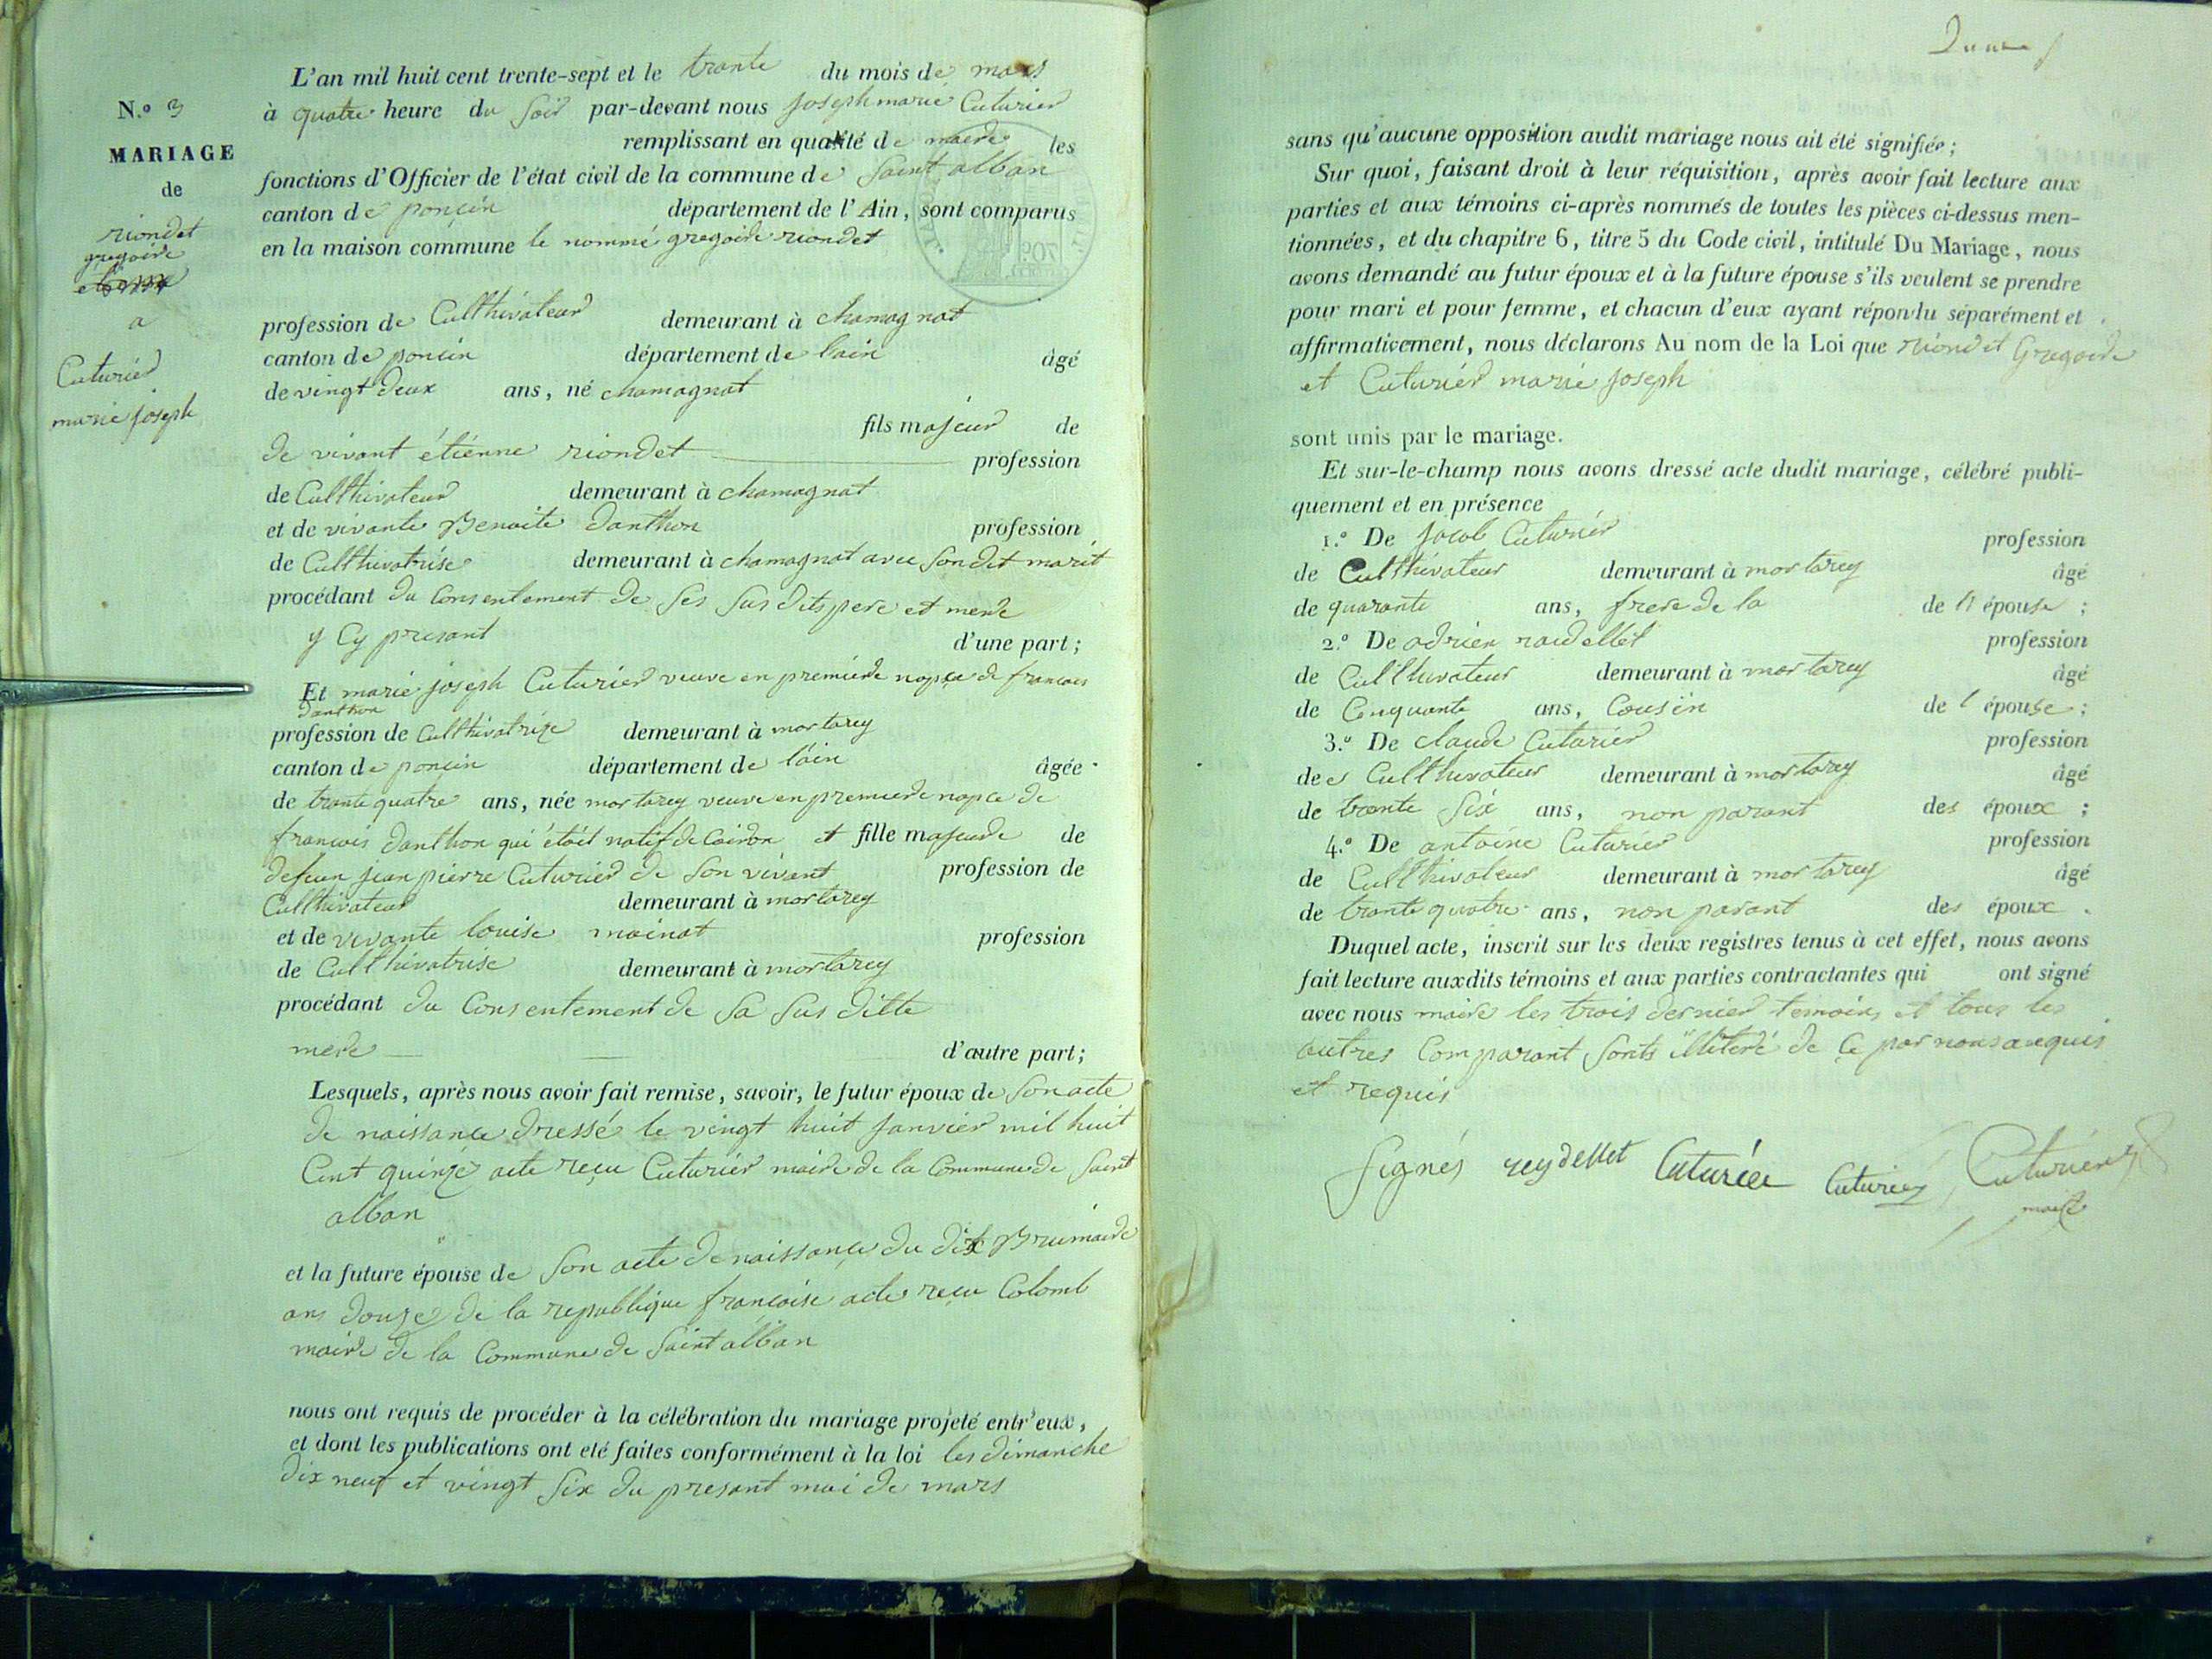 N.o 3
MARIAGE
de
riondet
gregoire
a
Cuturier
marie joseph
L'an mil huit cent trente-sept et le trante du mois de mars
à quatre heure du soir par-devant nous joseph marie Cuturier
remplissant en qualité de maire les
fonctions d'Officier de l'état civil de la commune de Saint alban
canton de poncin département de l'Ain, sont comparus
en la maison commune le nommé gregoire riondet
profession de Culthivateur demeurant à chamagnat
canton de poncin département de lain âgé
de vingt deux ans, né chamagnat
fils majeur de
de vivant étienne riondet profession
de Culthivateur demeurant à chamagnat
et de vivante Benoite Danthon profession
de Culthivatrise demeurant à chamagnat avec son dit marit
procédant du Consentement de ses sus dits pere et mere
y Cy present d'une part;
Et marie joseph Cuturier veuve en premiere nopce de francois
Danthon
profession de Culthivatrize demeurant à mortarey
canton de poncin département de l'ain âgée
de trante quatre ans, née mortarey veuve en premiere nopce de
francois Danthon qui étoit natif de Coiron et fille majeure de
defeun jean pierre Cuturier de son vivant profession de
Culthivateur demeurant à mortarey
et de vivante louise moinat profession
de Culthivatrise demeurant à mortarey
procédant du Consentement de sa sus ditte
mere d'autre part;
Lesquels, après nous avoir fait remise, savoir, le futur époux de son acte
de naissance dressé le vingt huit janvier mil huit
Cent quinze acte reçu Cuturier maire de la Commune de Saint
alban
et la future épouse de son acte de naissance du dix Brumaire
ans douze de la republique francoise acte reçu Colomb
maire de la Commune de Saint alban
nous ont requis de procéder à la célébration du mariage projeté entr'eux,
et dont les publications ont été faites conformément à la loi les dimanche
dix neuf et vingt six du present moi de mars
sans qu'aucune opposition audit mariage nous ait été signifiée;
Sur quoi, faisant droit à leur réquisition, après avoir fait lecture aux
parties et aux témoins ci-après nommés de toutes les pièces ci-dessus men-
tionnées, et du chapitre 6, titre 5 du Code civil, intitulé Du Mariage, nous
avons demandé au futur époux et à la future épouse s'ils veulent se prendre
pour mari et pour femme, et chacun d'eux ayant répondu séparément et
affirmativement, nous déclarons Au nom de la Loi que riondet Gregoire
et Cuturier marie joseph
sont unis par le mariage.
Et sur-le-champ nous avons dressé acte dudit mariage, célébré publi-
quement et en présence
1.o De jacob Cuturier profession
de Culthivateur demeurant à mortarey âgé
de quarante ans, frere de la de l'épouse;
2.o De adrien raidellet profession
de Culthivateur demeurant à mortarey âgé
de Cinquante ans, Cousin de l épouse;
3.o De claude Cuturier profession
de Culthivateur demeurant à mortarey âgé
de trante six ans, non parant des époux;
4.o De antoine Cuturier profession
de Culthivateur demeurant à mortarey âgé
de trante quatre ans, non parant des époux.
Duquel acte, inscrit sur les deux registres tenus à cet effet, nous avons
fait lecture auxdits témoins et aux parties contractantes qui ont signé
avec nous maire les trois dernier temoins et tous les
autres Comparant sonts illiteré de Ce par nous anquis
et requis
Signés reydellet Cuturier Cuturier Cuturier
maire